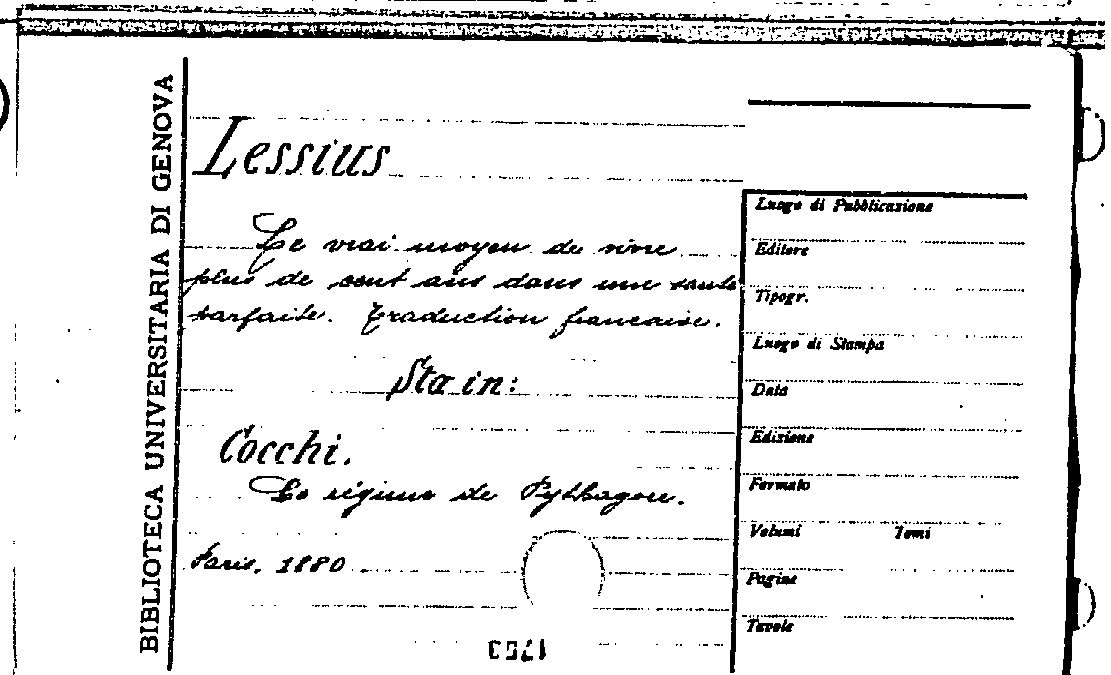 BIBLIOTECA UNIVERSITARIA DI GENOVA
Lessius
Le vrai moyen de vivre
plus de cent ans dans une santé
parfaite. Traduction française.
Sta in:
Cocchi.
Le régime de Pythagore.
Paris. 1880
Luogo di Pubblicazione
Editore
Tipogr.
Luogo di Stampa
Data
Edizione
Formato
Volumi Tomi
Pagine
Tavole